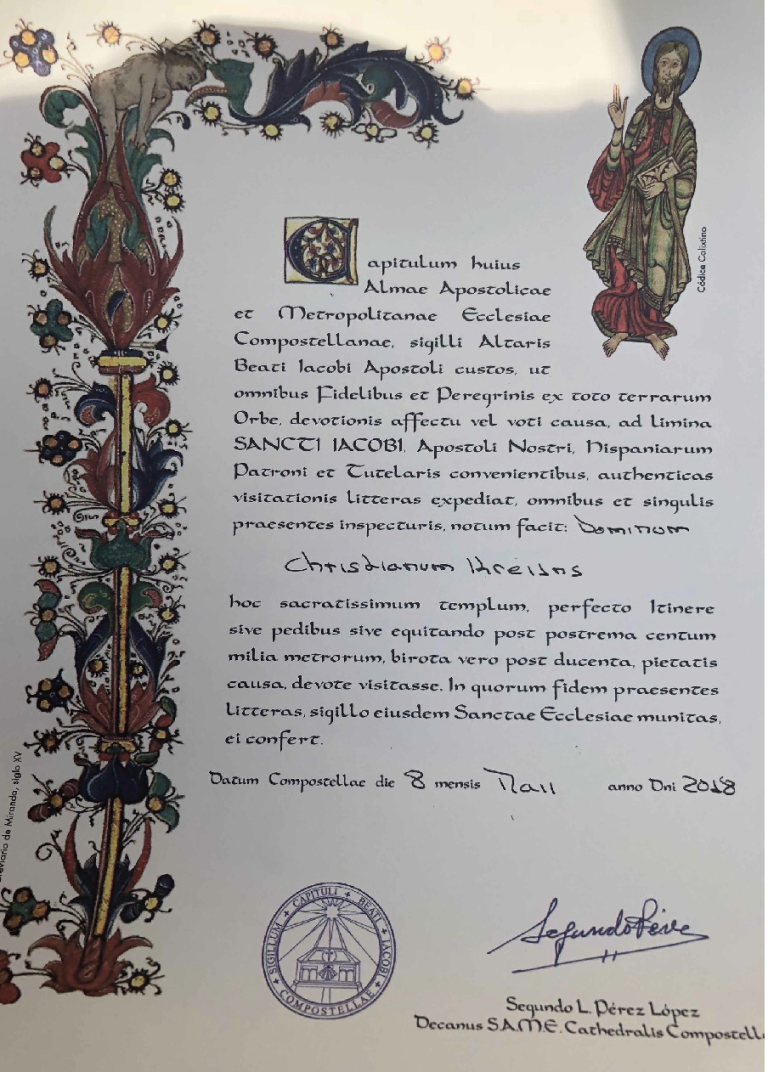 Capitulum huius
Almae Apostolicae
et Metropolitanae Ecclesiae
Compostellanae, sigilli Altaris
Beati Iacobi Apostoli custos, ut
omnibus Fidelibus et Peregrinis ex toto terrarum
Orbe, devotionis affectu vel voti causa, ad limina
SANCTI IACOBI, Apostoli Nostri, Hispaniarum
Patroni et Tutelaris convenientibus, authenticas
visitationis litteras expediat, omnibus et singulis
praesentes inspecturis, notum facit: Dominum
Christianum
hoc sacratissimum templum, perfecto Itinere
sive pedibus sive equitando post postrema centum
milia metrorum, birota vero post ducenta, pietatis
causa, devote visitasse. In quorum fidem praesentes
litteras, sigillo eiusdem Sanctae Ecclesiae munitas,
ei confert.
Datum Compostellae die 8 mensis Maii anno Dni 2018
Códice Calixtino
Breviario de Miranda, siglo XV
SIGILLUM + CAPITULI + BEATI + IACOBI + COMPOSTELLAE +
Segundo L. Pérez López
Decanus S.A.M.E. Cathedralis Compostell